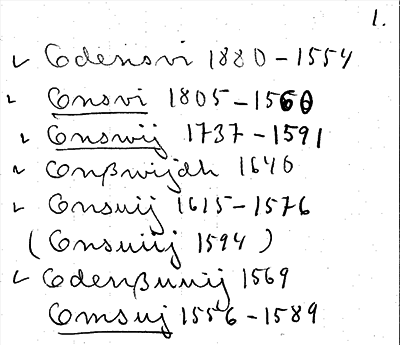 1.
Codensvi 1880-1554
Consvi 1805-1560
Conswij 1737-1591
Conßwijdh 1640
Consuij 1615-1576
(Consuiij 1594)
Codenßuuij 1569
Comsuj 1556-1589